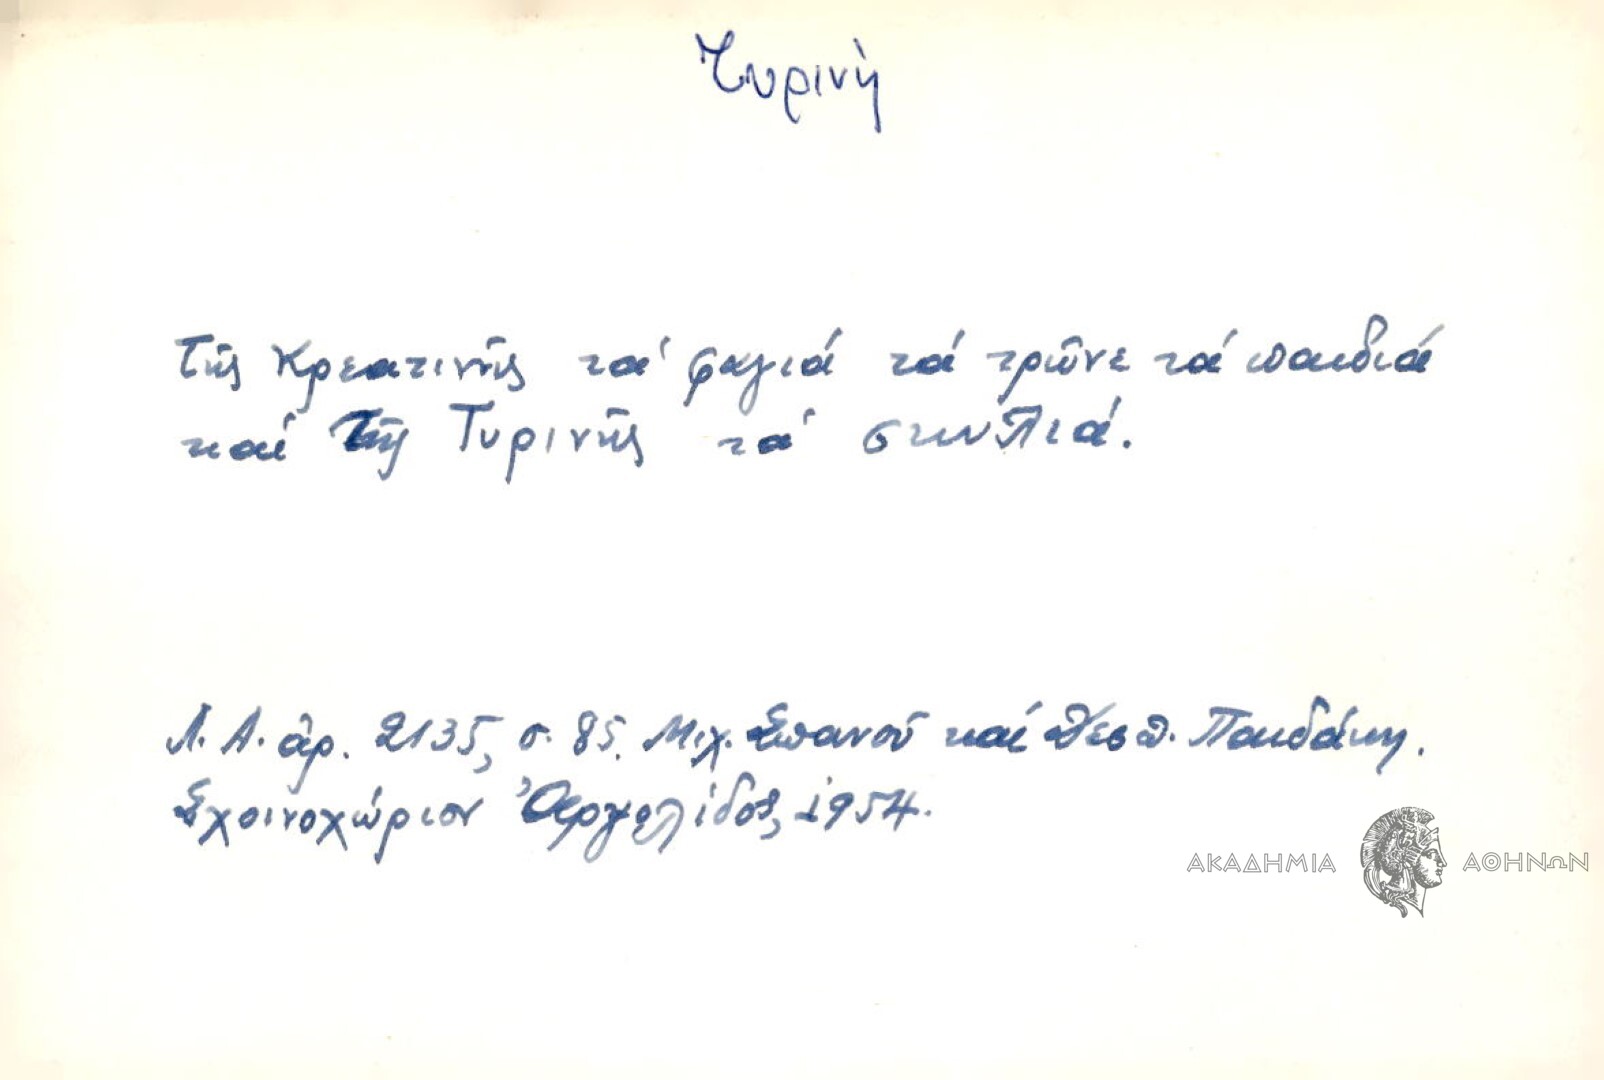 Τυρινή
Τῆς Κρεατινῆς τά φαγιά τά τρῶνε τά παιδιά
καί τῆς Τυρινῆς τά σκυπιά.
Λ. Α. ἀρ. 2135, σ. 85. Μιχ. Σπανοῦ καί Θεσπ. Παιδάκη.
Σχοινοχώριον Ἀργολίδος, 1954.
ΑΚΑΔΗΜΙΑ ΑΘΗΝΩΝ